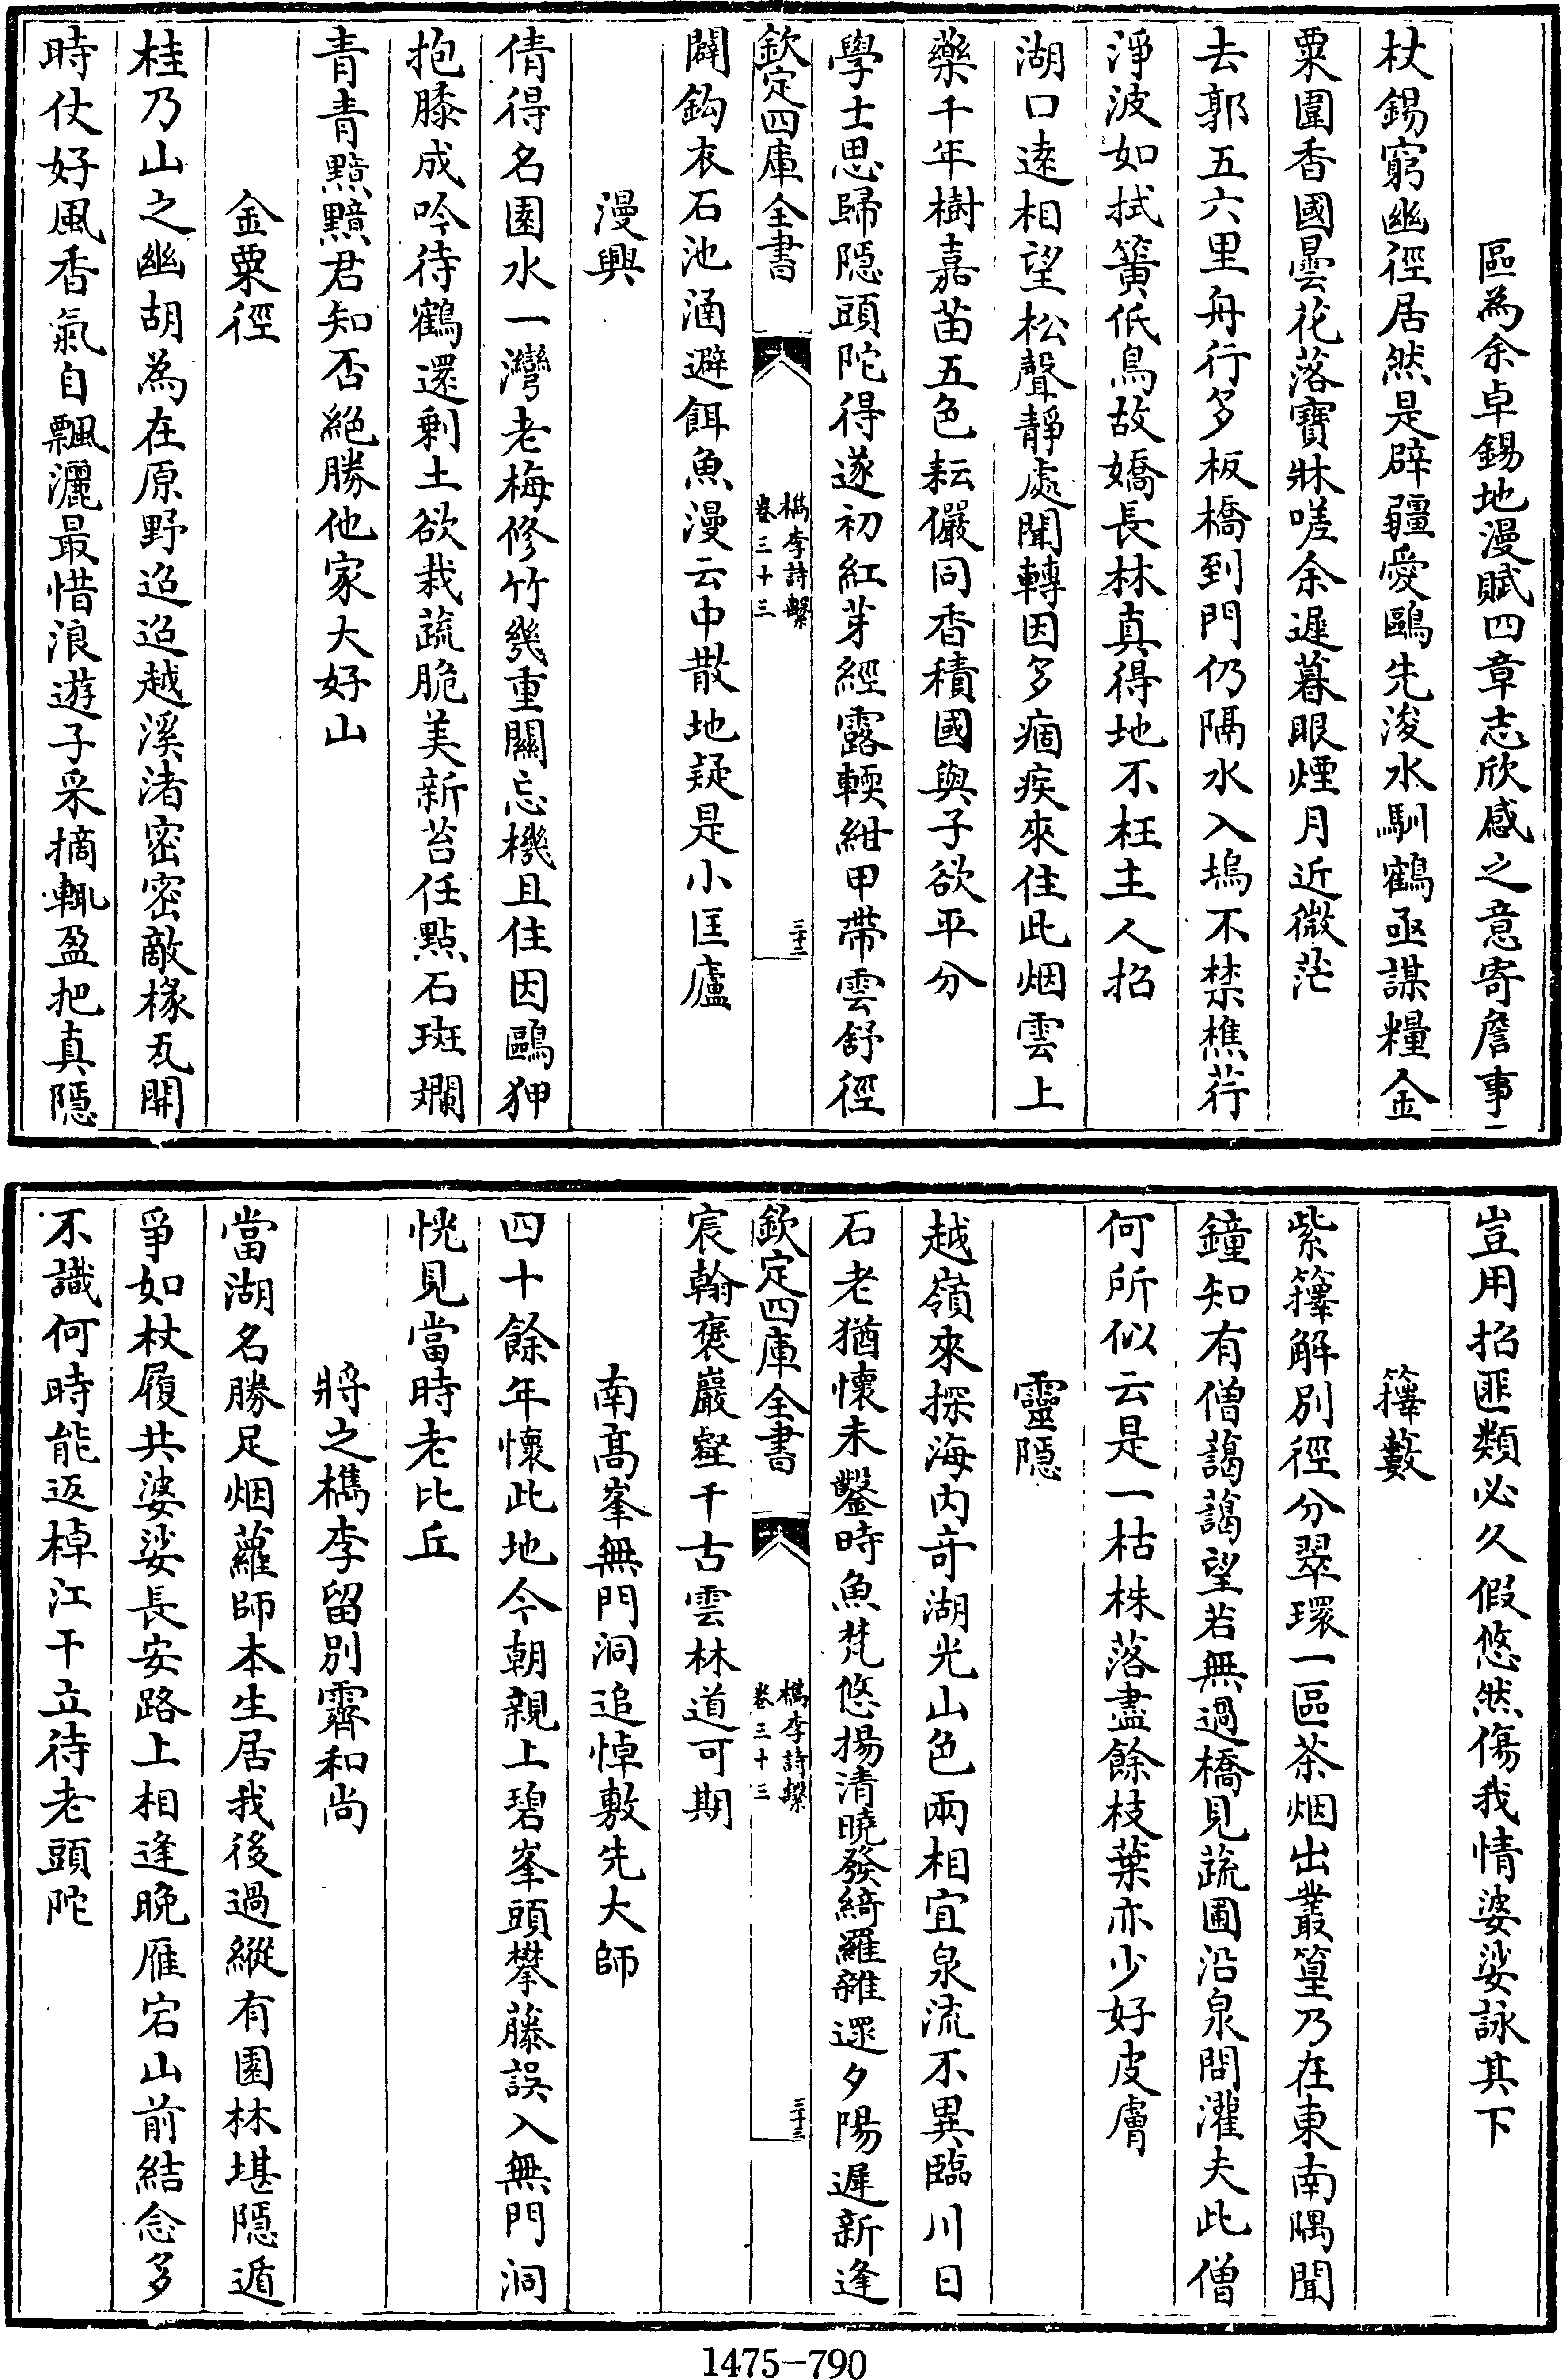 區為余卓錫地漫賦四章志欣感之意寄詹事一
杖錫窮幽徑居然是辟疆愛鷗先浚水馴鶴亟謀糧金
粟園香國曇花落寶牀嗟余遲暮眼煙月近微茫
去郭五六里舟行多板橋到門仍隔水入塢不禁樵荇
淨波如拭篢低鳥故嬌長林真得地不枉主人招
湖口遠相望松聲靜處聞轉因多痼疾來住此烟雲上
藥千年樹嘉苗五色耘儼同香積國與子欲平分
學士思歸隱頭陀得遂初紅芽經露輭紺甲帶雲舒徑
欽定四庫全書
檇李詩繫
卷三十三
三十二
闢鈎衣石池涵避餌魚漫云中散地疑是小匡廬
漫興
倩得名園水一灣老梅修竹幾重關忘機且住因鷗狎
抱膝成吟待鶴還剩土欲栽蔬脆美新苔任點石斑斕
青青黯黯君知否絕勝他家大好山
金粟徑
桂乃山之幽胡為在原野迢迢越溪渚密密敵椽瓦開
時仗好風香氣自飄灑最惜浪遊子采摘輒盈把真隱
豈用招匪類必久假悠然傷我情婆娑詠其下
籜藪
紫籜解別徑分翠環一區茶烟出叢篁乃在東南隅聞
鐘知有僧藹藹望若無過橋見蔬圃沿泉問灌夫此僧
何所似云是一枯株落盡餘枝葉亦少好皮膚
靈隱
越嶺來探海內竒湖光山色兩相宜泉流不異臨川日
石老猶懷未鑿時魚梵悠揚清曉發綺羅雜遝夕陽遲新逢
欽定四庫全書
檇李詩繫
卷三十三
三十三
宸翰褒巖壑千古雲林道可期
南高峯無門洞追悼敷先大師
四十餘年懷此地今朝親上碧峯頭攀藤誤入無門洞
恍見當時老比丘
將之檇李留別霽和尚
當湖名勝足烟蘿師本生居我後過縱有園林堪隱遁
爭如杖履共婆娑長安路上相逢晚雁宕山前結念多
不識何時能返棹江干立待老頭陀
1475-790